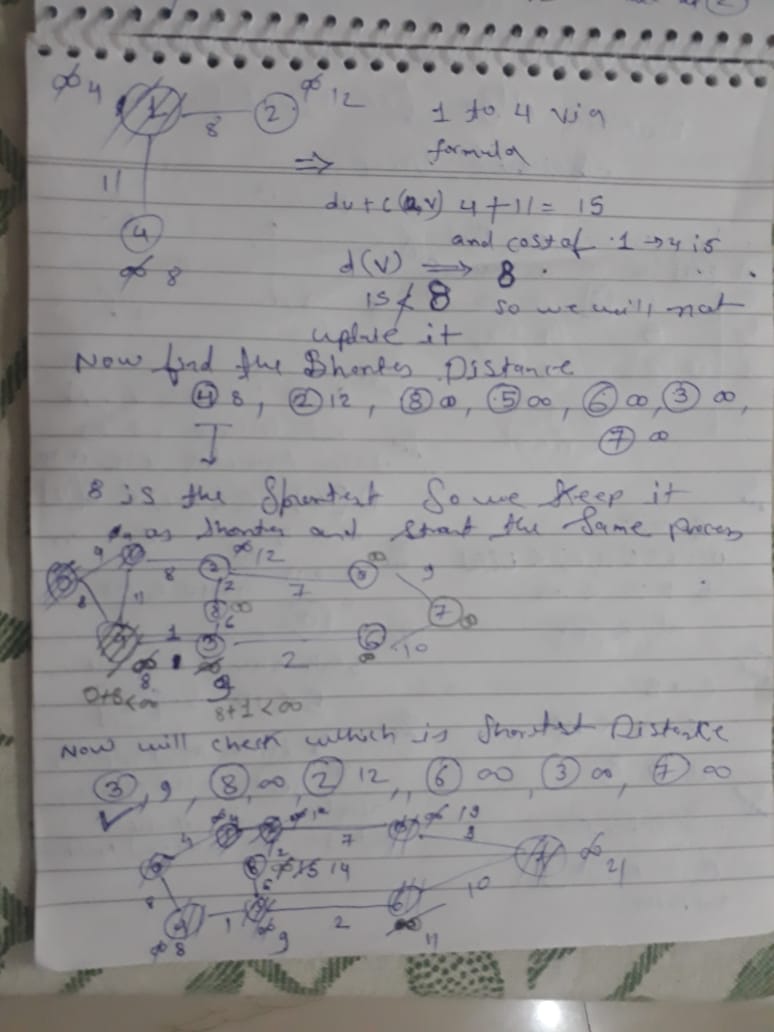 ∞ 4 1 8 2 ∞ 12
1 to 4 via
formula
11
⇒
du + c(u,v) 4+11 = 15
4
and cost of 1 → 4 is
∞ 8
d(v) ⇒ 8
15 ≮ 8 so we will not
update it
Now find the Shortes Distance
④ 8, ② 12, ⑧ ∞, ⑤ ∞, ⑥ ∞, ③ ∞,
⑦ ∞
8 is the Shrentest So we keep it
as shorter and strart the same process
9 8 2 ∞ 12 7 9
8 11 2 8 ∞ 7 ∞
1 6 2 6 ∞ 10
∞ 8 9
0+8<∞ 8+1<∞
Now will check which is Shortest Distance
③, 9, ⑧, ∞ ② 12, , ⑥ ∞, ③ ∞, ⑦ ∞
4 7 ∞ 19
2
8 8 14 7 ∞ 21
6 10
∞ 8 1 ∞ 9 2 6 11